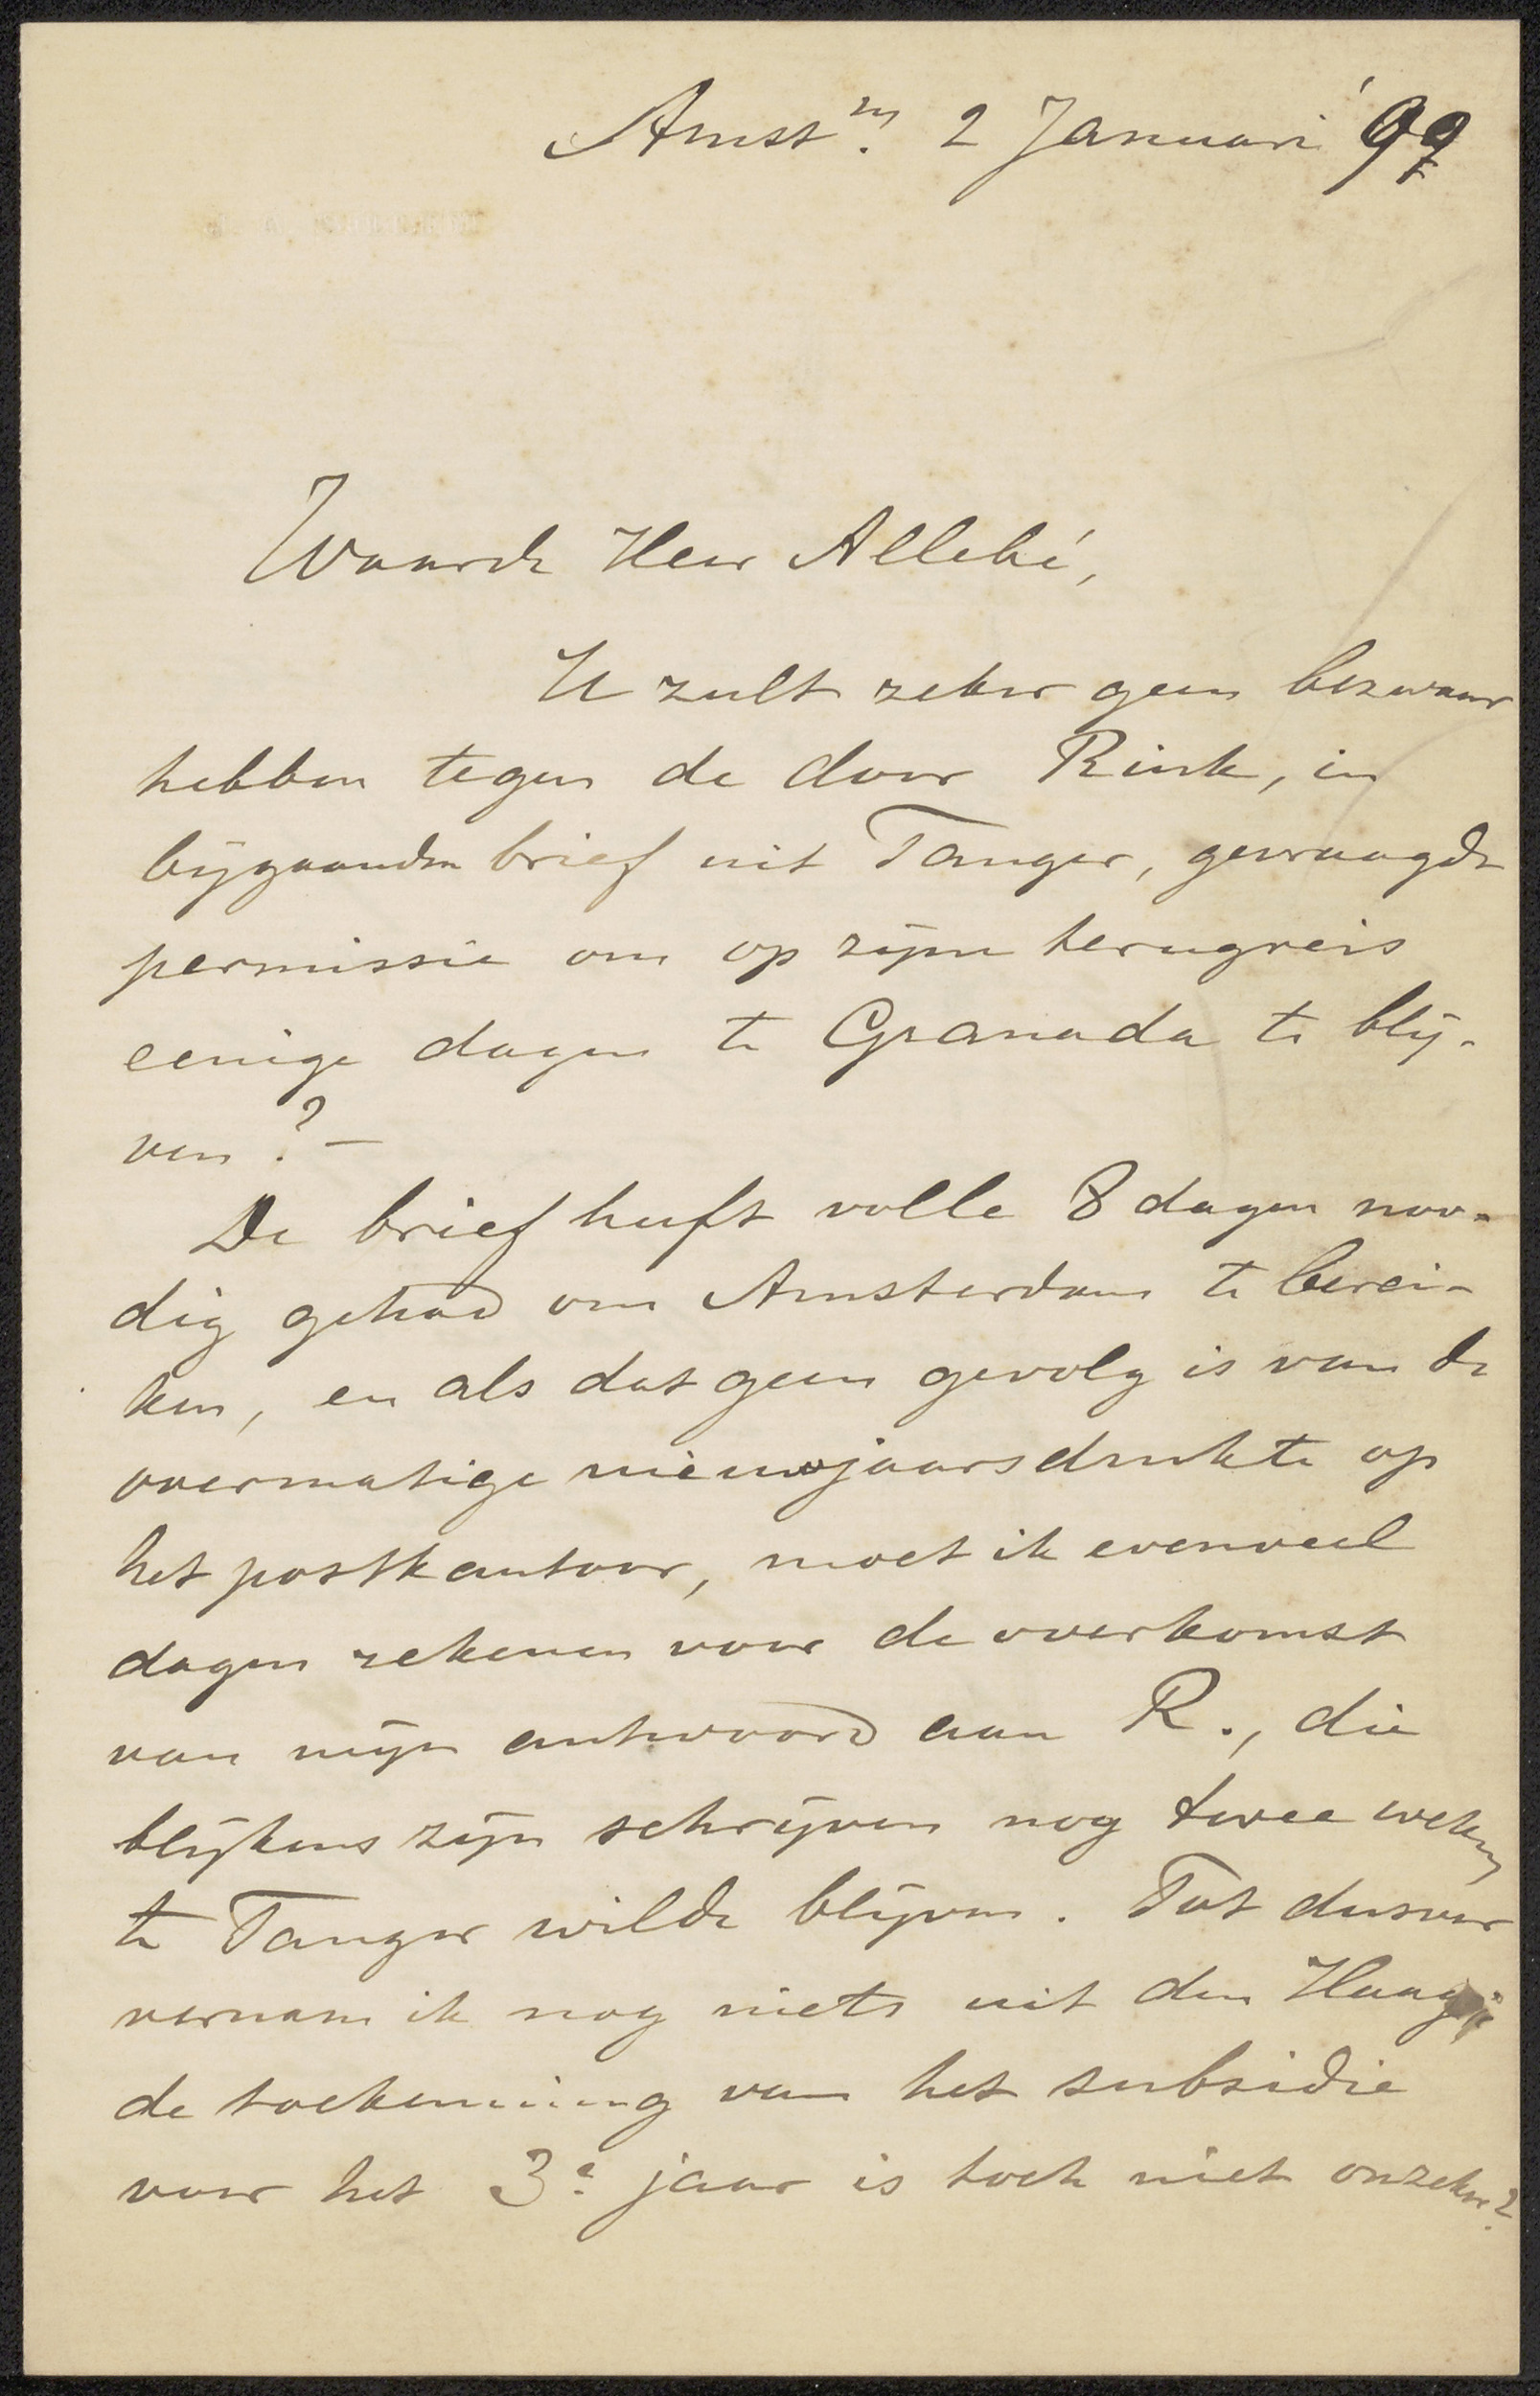 Amstm. 2 Januari '99
Waarde Heer Allebé,
U zult zeker geen bezwaar
hebben tegen de door Rink, in
bijgaanden brief uit Tanger, gevraagde
permissie om op zijne terugreis
eenige dagen te Granada te blij-
ven? —
De brief heeft volle 8 dagen noo-
dig gehad om Amsterdam te berei-
ken, en als dat geen gevolg is van de
overmatige nieuwjaarsdrukte op
het postkantoor, moet ik evenveel
dagen rekenen voor de overkomst
van mijn antwoord aan R., die
blijkens zijn schrijven nog twee weken
te Tanger wilde blijven. Tot dusver
vernam ik nog niets uit den Haag;
de toekenning van het subsidie
voor het 3e jaar is toch niet onzeker?